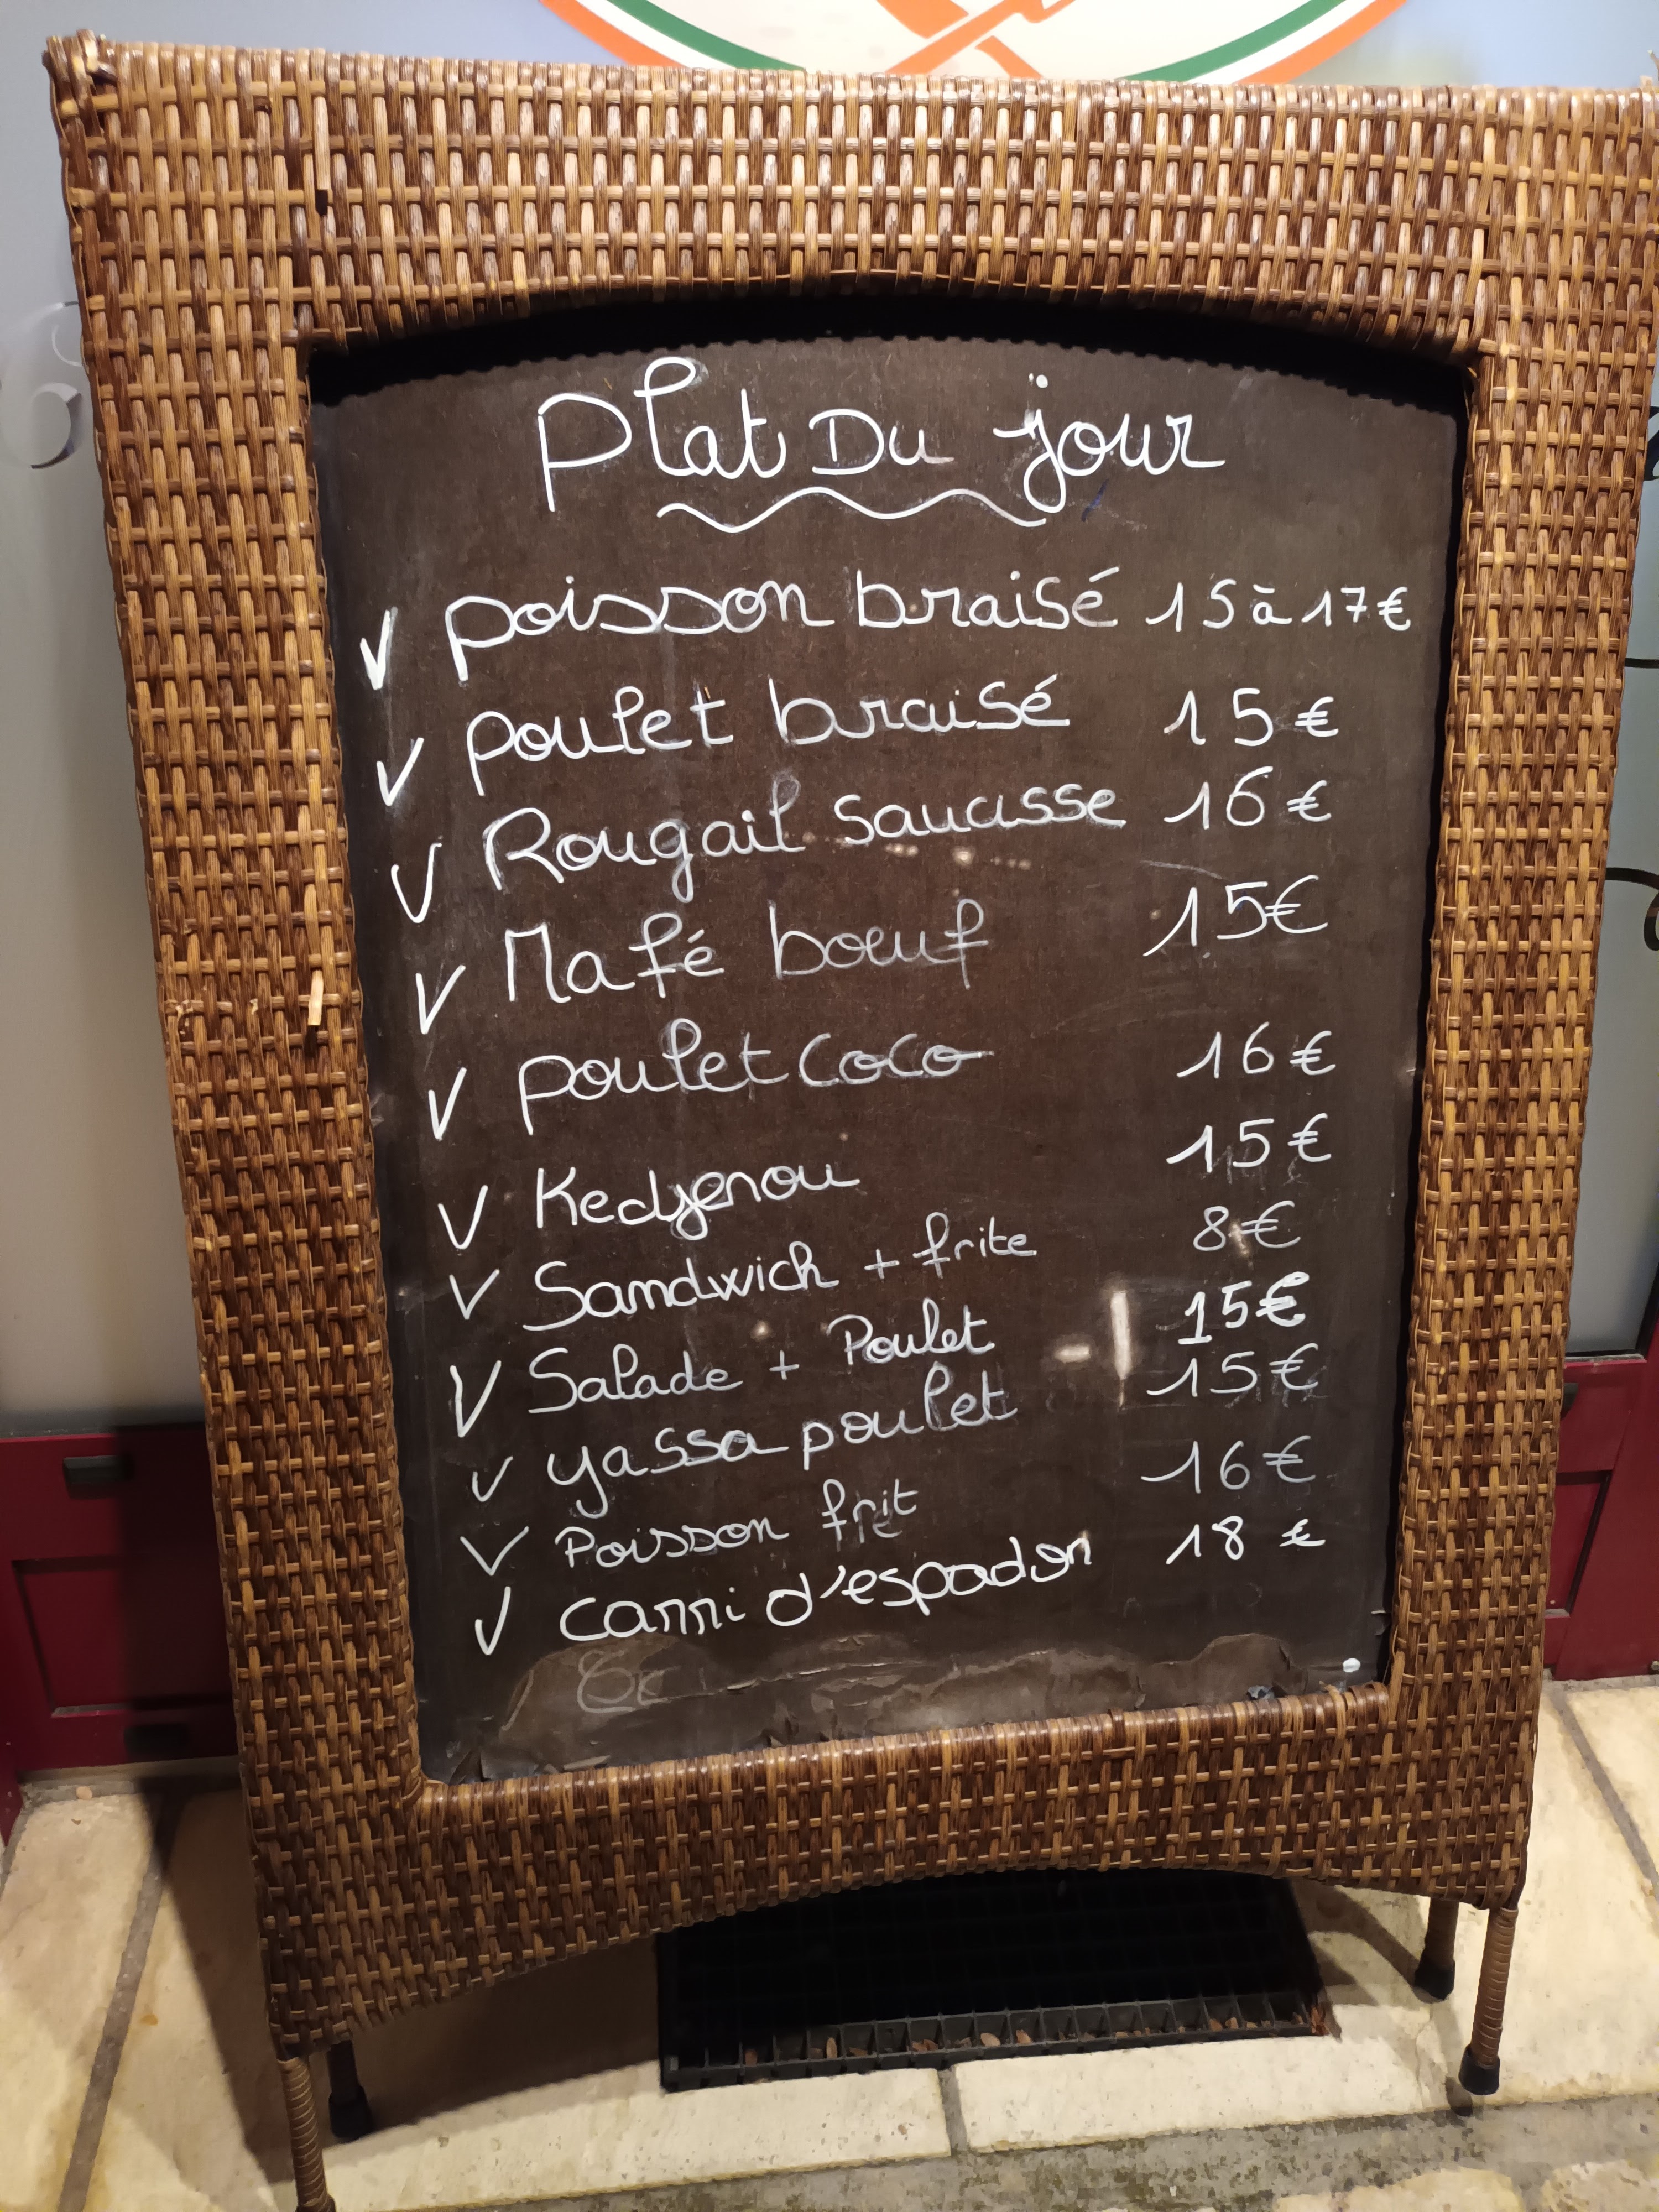 Plat Du jour
poisson braisé 15 à 17€
poulet braisé 15€
Rougail saucisse 16€
Mafé bœuf 15€
poulet coco 16€
Kedjenou 15€
Sandwich + frite 8€
Salade + Poulet 15€
yassa poulet 15€
Poisson frit 16€
carri d'espadon 18€